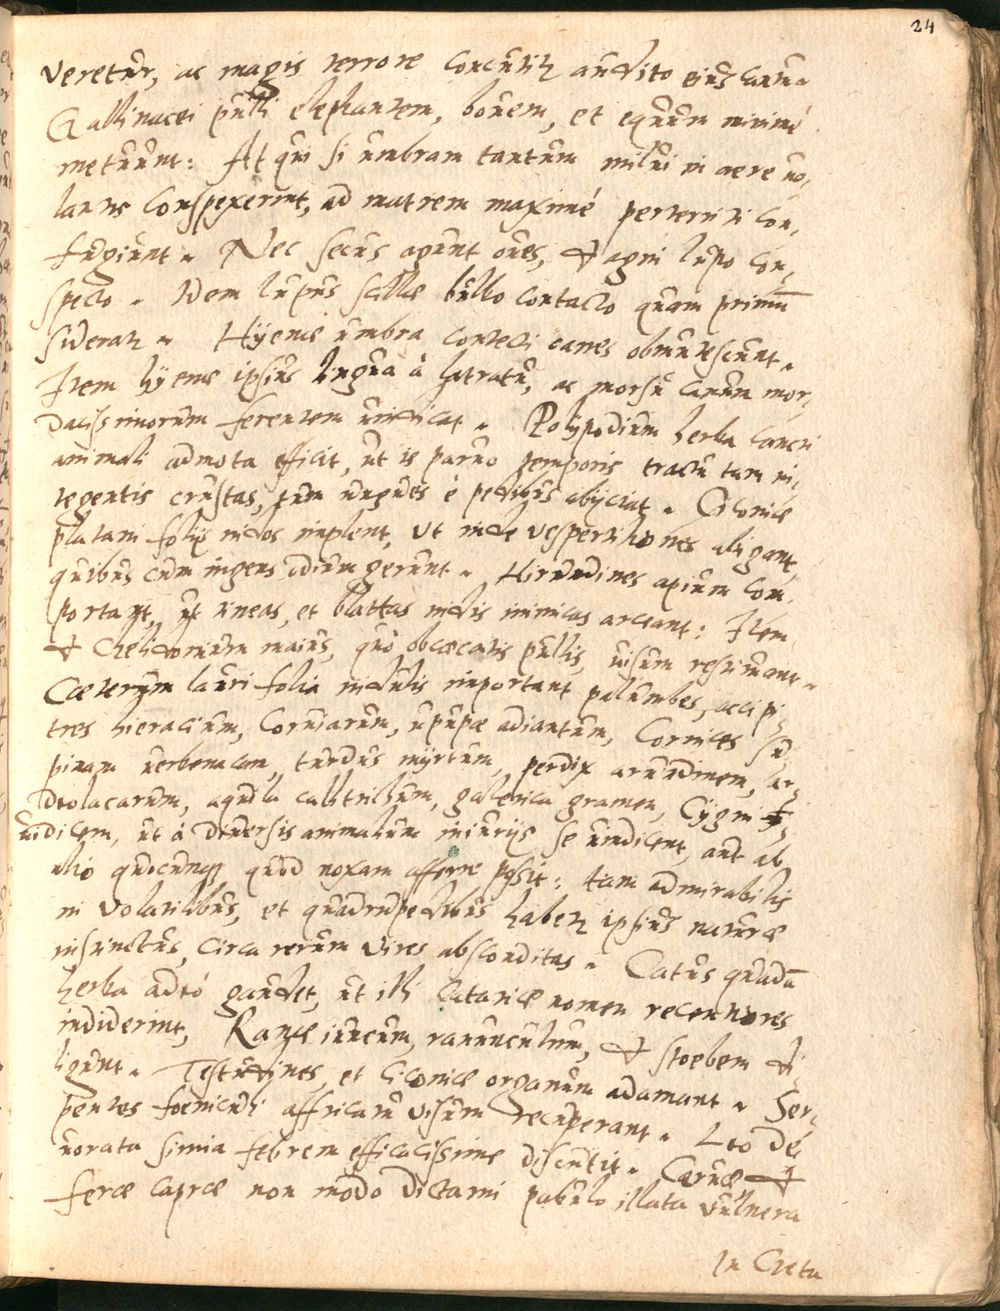 24
veretur, ac magis terrore concutitur audito eius cantu.
Gallinacei pulli elephantem, bouem, et equum minimè
metuunt: At qui si umbram tantum milui in aere uo,
lantis conspexerint, ad matrem maximè perterriti con,
fugiunt. Nec secus agunt oues, & agni lupo con,
specto. Idem lupus scillae bulbo contacto quam primũ
sideratur. Hyenae umbra contecti canes obmutescunt.
Item hyenae ipsius lingua à latratu, ac morsu canum mor,
dacissimorum ferentem uindicat. Polypodium herba cancri
animali admota efficit, ut is paruo temporis tractu tum in,
tegentis crustas, tum ungues è pedibus abijciat. Ciconiae
platani folijs nidos implent, ut inde vespertiliones abigant,
quibus cum ingens odium gerunt. Hirundines apium com,
portant, ut tineas, et blattas nidis inimicas arceant: Item
& Chelidonium maius, quo obcaecatis pullis, uisum restituant.
Caeterum lauri folia nidulis important palumbes, accipi,
tres hieracium, Coruiarum, upupae adiantum, Cornices su,
pinam uerbenacam, turdus myrtum, perdix arundinem, ar,
diola carum, aquila callitrichum, galerica gramen, Cygni
uiticem, ut à diuersis animalium iniurijs se uindicent, aut ab
alio quocunque, quod noxam afferre possit: tam admirabilis
in volatilibus, et quadrupedibus habetur ipsius naturae
instinctus, circa rerum vires absconditas. Catus quadã
herba adeò gaudet, ut illi Catariae nomen recentiores
indiderint, Ranae iuncum, ranunculum, & stoebem di,
ligunt. Testudines, et ciconiae origanum adamant. Ser,
pentes foeniculi affricatu visum recuperant. Leo de,
uorata simia febrem efficacissime discutit. Ceruae &
ferae caprae non modo dictami pabulo illata vulnera
In Creta